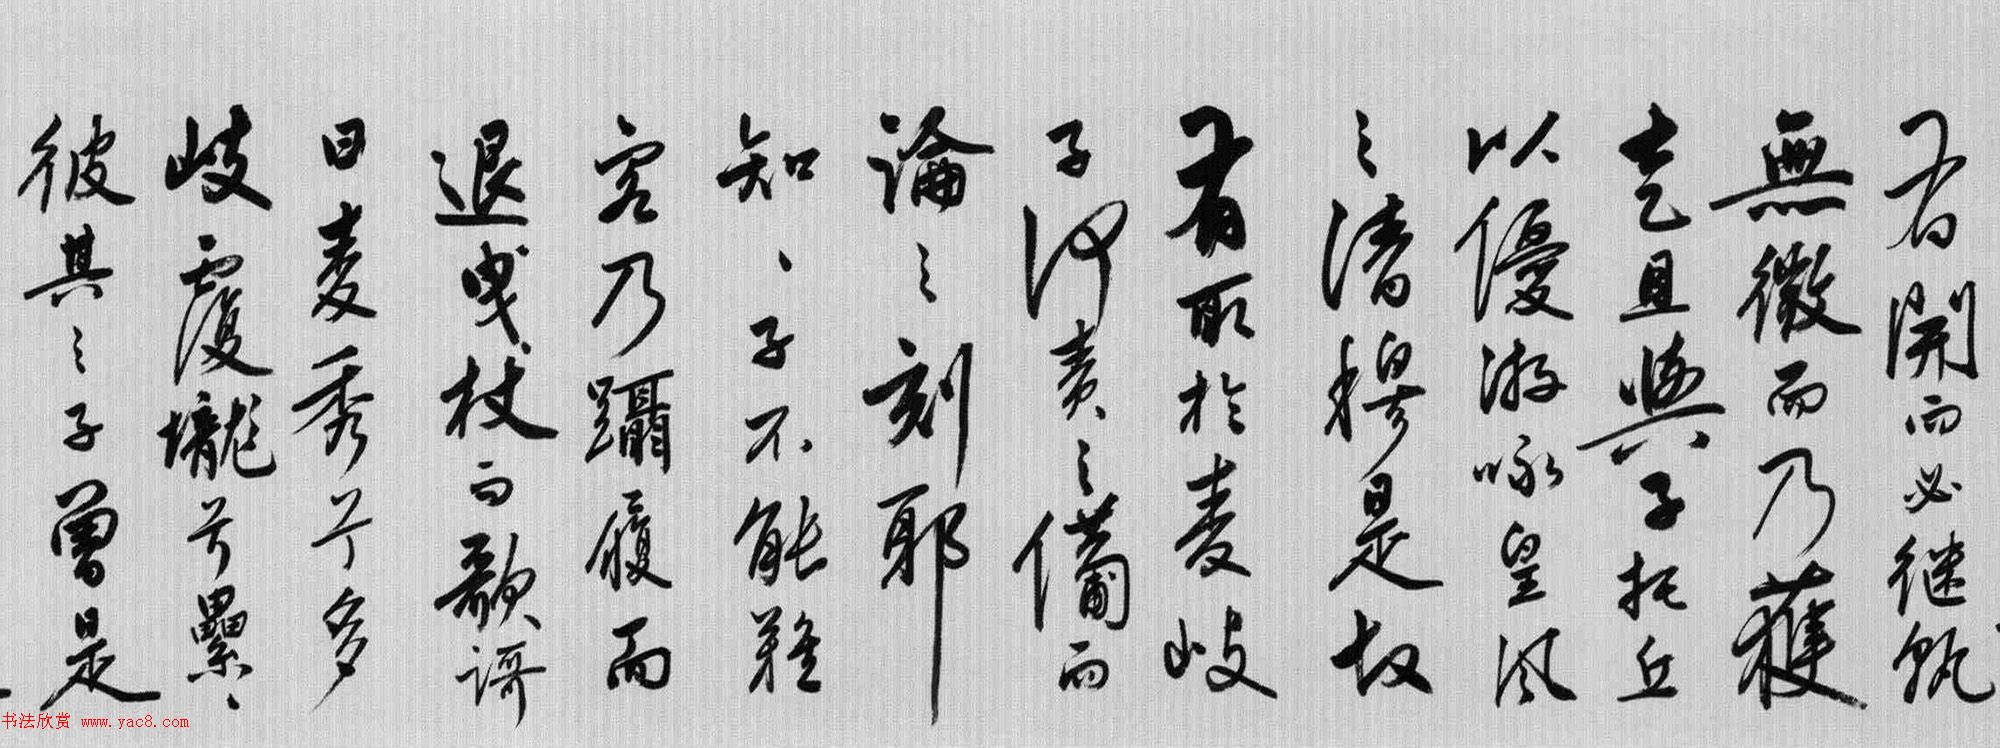 君開而必继孰
無徵而乃獲
㐫且與子托丘
以優游咏皇风
之清穆是故
君有取於麦岐
子何责之備而
論之刻耶
知知子不能難
客乃躡履而
退曳杖而歌歌
曰麦秀兮多
岐覆壠兮纍纍
彼其之子曾是
书法欣赏 www.yac8.com